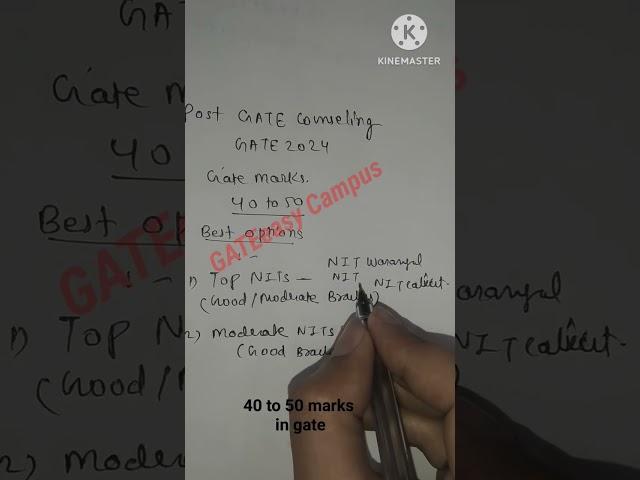 KINEMASTER
Post GATE Counseling
GATE 2024
Gate marks.
40 to 50
Best options
GATEeasy Campus
1) Top NITs — NIT Warangal
NIT NIT Calicut.
(Good/Moderate
2) Moderate NITs
(Good
40 to 50 marks
in gate